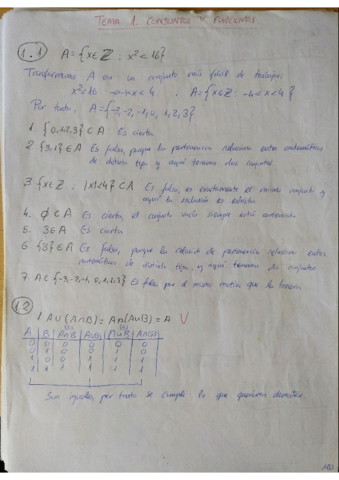 TEMA 1. CONJUNTOS Y FUNCIONES
1.1 A = {x∈Z : x² < 16}
Transformamos A en un conjunto más fácil de trabajar
x² < 16 → -4<x<4 . A = {x∈Z : -4<x<4}
Por tanto, A = {-3,-2,-1,0,1,2,3}
1. {0,1,2,3} ⊂ A Es cierta
2. {3,1} ∈ A Es falsa, porque la pertenencia relaciona entes matemáticos
de distinto tipo y aquí tenemos dos conjuntos.
3. {x∈Z : |x|<4} ⊂ A Es falsa, es exactamente el mismo conjunto y
aquí la inclusión es estricta.
4. ∅ ⊂ A Es cierta, el conjunto vacío siempre está contenido
5. 3 ∈ A Es cierta
6. {3} ∈ A Es falsa, porque la relación de pertenencia relaciona entes
matemáticos de distinto tipo, y aquí tenemos dos conjuntos.
7. A ⊂ {-3,-2,-1,0,1,2,3} Es falsa por el mismo motivo que la tercera
1.2
1 A∪(A∩B) = A∩(A∪B) = A V
A B A∩B A∪B
0 0 0 0 0 0
0 1 0 1 0 0
1 0 0 1 1 1
1 1 1 1 1 1
Son iguales, por tanto se cumple lo que queríamos demostrar.